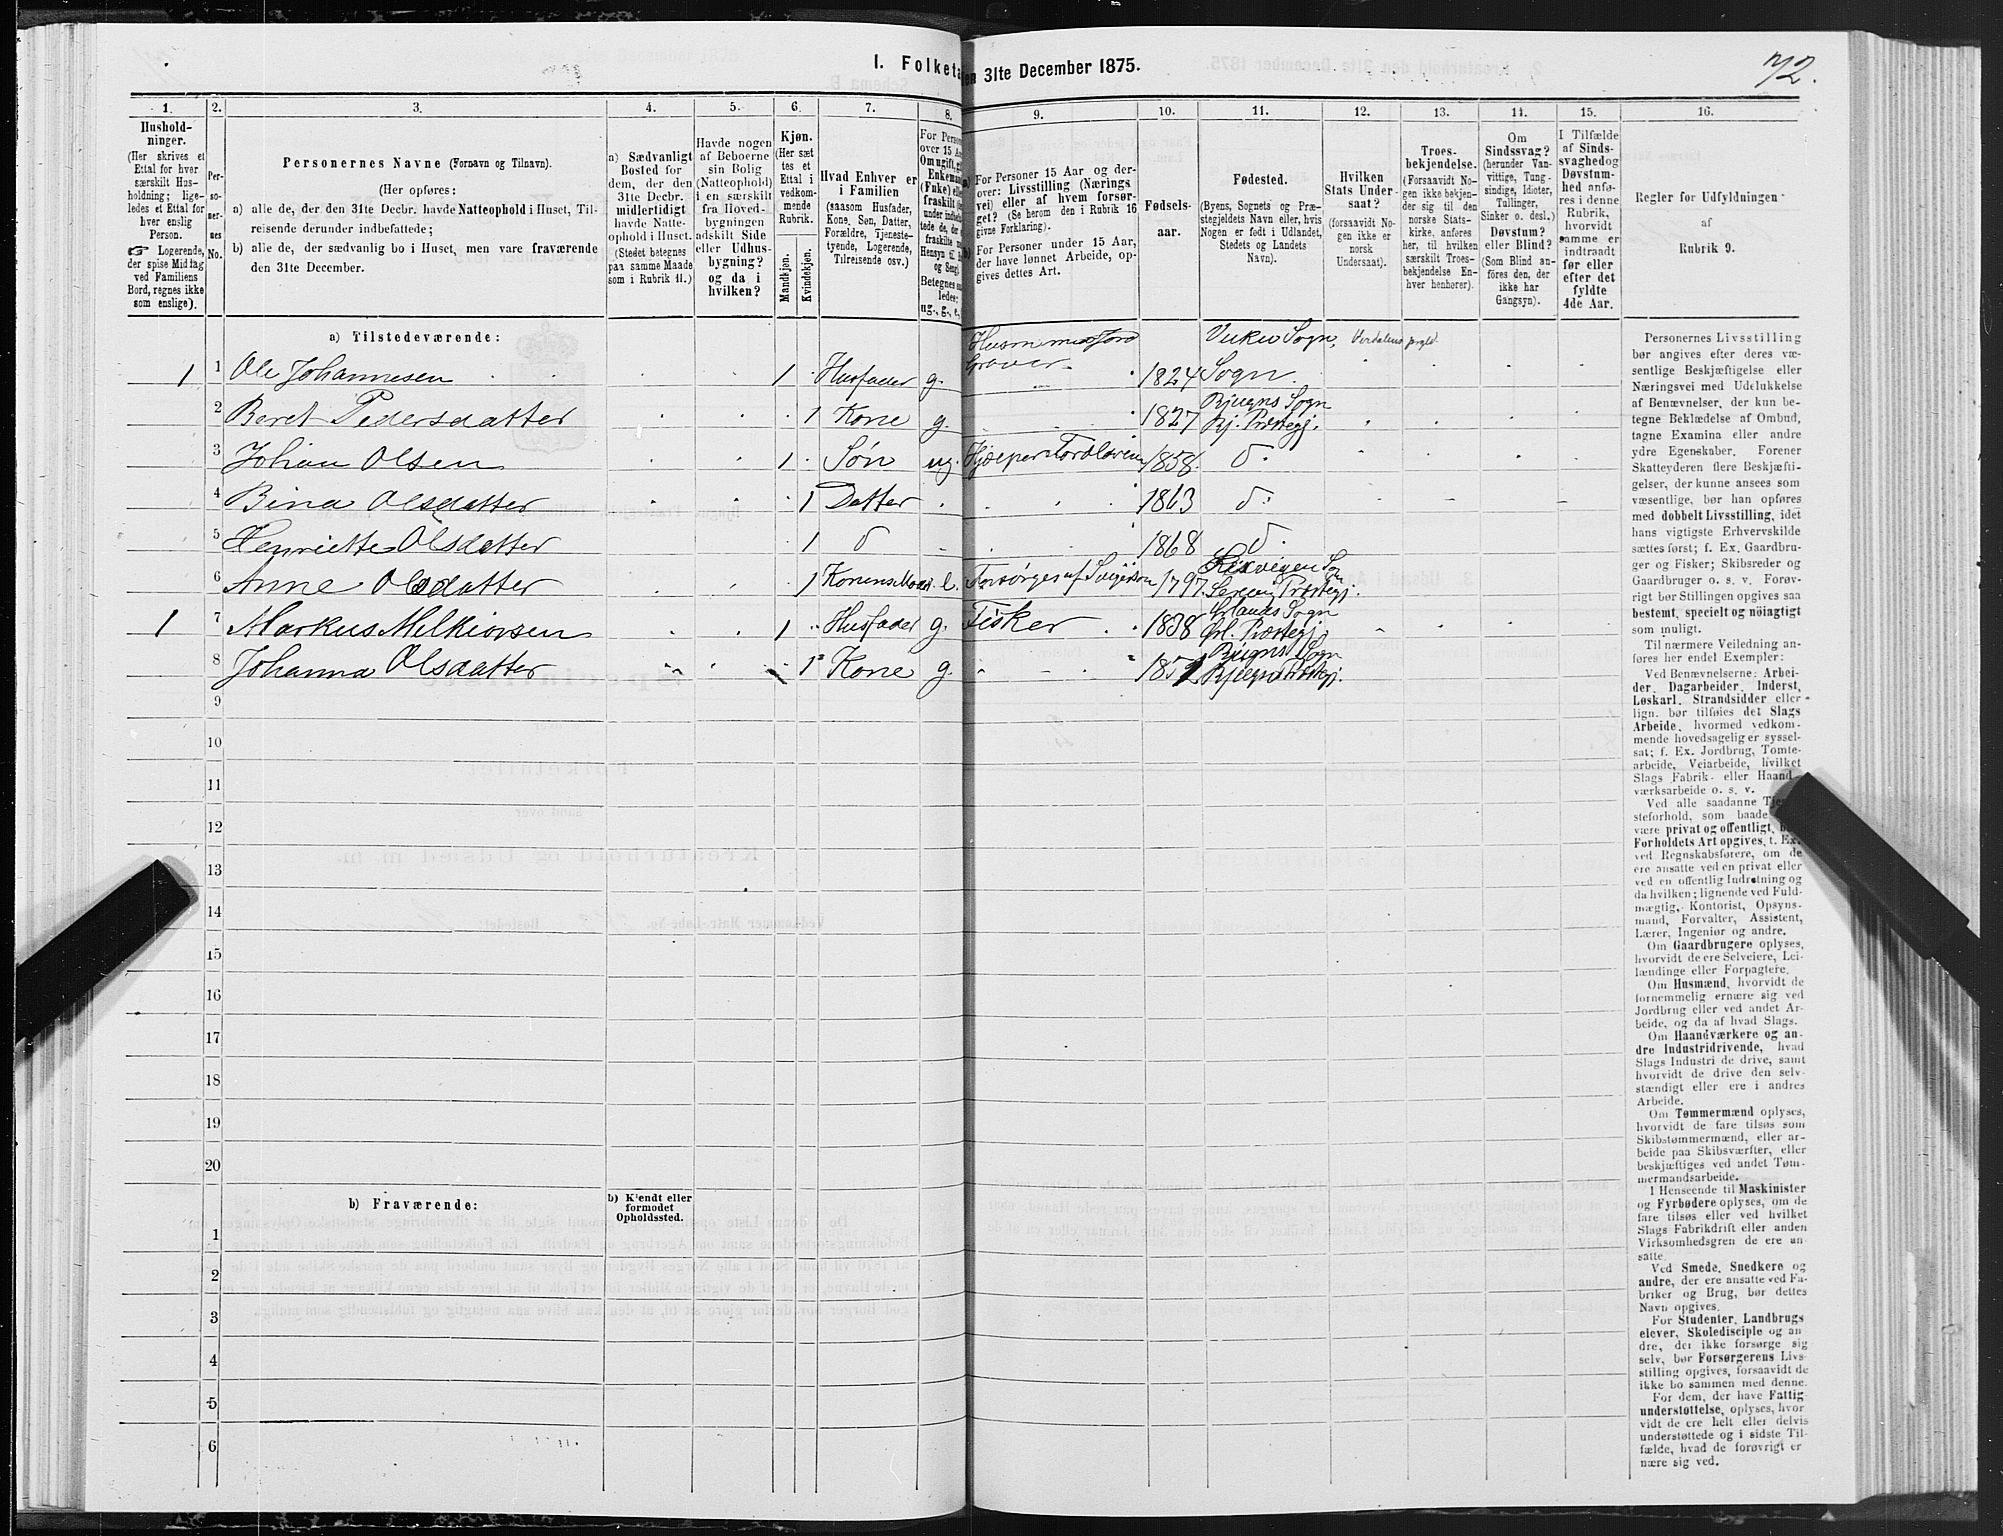 72.
I. Folketa
en 31te December 1875.
1. 2. 3. 4. 5. 6. 7. 8. 9. 10. 11. 12. 13. 14. 15. 16.
Husholdninger.
(Her skrives et Ettal for hver særskilt Husholdning; ligeledes et Ettal for hver enslig Person.
☞ Logerende, der spise Middag ved Familiens Bord, regnes ikke som enslige).
Personernes No.
Personernes Navne (Fornavn og Tilnavn).
(Her opføres:
a) alle de, der den 31te Decbr. havde Natteophold i Huset, Tilreisende derunder indbefattede;
b) alle de, der sædvanlig bo i Huset, men vare fraværende den 31te December.
a) Sædvanligt Bosted for dem, der den 31te Decbr. midlertidigt havde Natteophold i Huset. (Stedet betegnes paa samme Maade som i Rubrik 11.)
Havde nogen af Beboerne sin Bolig (Natteophold) i en særskilt fra Hovedbygningen adskilt Side eller Udhusbygning? og da i hvilken?
Kjøn.
(Her sættes et Ettal i vedkommende Rubrik.
Mandkjøn.
Kvindekjøn.
Hvad Enhver er i Familien
(saasom Husfader, Kone, Søn, Datter, Forældre, Tjenestetyende, Logerende, Tilreisende osv.)
For Person
over 15 Aa
Omugift, g
Enkeman
(Fnke) elle
fraskilt
ug., g., e,
a) For Personer 15 Aar og derover: Livsstilling (Næringsvei) eller af hvem forsørget? (Se herom den i Rubrik 16 givne Forklaring).
b) For Personer under 15 Aar, der have lønnet Arbeide, opgives dettes Art.
Fødselsaar.
Fødested.
(Byens, Sognets og Præstegjeldets Navn eller, hvis Nogen er født i Udlandet, Stedets og Landets Navn).
Hvilken Stats Undersaat?
(forsaavidt Nogen ikke er norsk Undersaat).
Troesbekjendelse.
(Forsaavidt Nogen ikke bekjender sig til den norske Statskirke, anføres her, til hvilken særskilt Troesbekjendelse Enhver henhører).
Om Sindssvag?
(herunder Vanvittige, Tungsindige, Idioter, Tullinger, Sinker o. desl.)
Døvstum? eller Blind?
(Som Blind anføres den, der ikke har Gangsyn).
I Tilfælde af Sindssvaghed og Døvstumhed anføres i denne Rubrik, hvorvidt samme er indtraadt før eller efter det fyldte 4de Aar.
Regler for Udfyldningen af Rubrik 9.
a) Tilstedeværende:
1 1 Ole Johannesen 1 Husfader g. Husmand Jord Graver 1824 Vuku Sogn, Verdalens prgld. Sogn.
2 Beret Pedersdatter 1 Kone g. 1827 Bjugns Sogn Bj. Præstegj.
3 Johan Olsen 1 Søn ug. Hjælper Forældrene 1858. d.
4 Bina Olsdatter 1 Datter 1863 d:
5 Henriette Olsdatter 1 d 1868 d.
6 Anne Olsdatter 1 Konens Moder e. Forsørges af Svigersøn 1797. Præstegj.
1 7 Markus Melkiorsen 1 Husfader g. Fisker 1838 Ørlands Sogn Ørl. Præstegj.
8 Johanna Olsdatter 1 Kone g. 1851 Bjugns Sogn Bjugns Præstegj.
9
10
11
12
13
14
15
16
17
18
19
20
b) Fraværende:
b) Kjendt eller formodet Opholdssted.
1
2
3
4
5
6
Personernes Livsstilling
bør angives efter deres væ-
sentlige Beskjæftigelse eller
Næringsvei med Udelukkelse
af Benævnelser, der kun be-
tegne Beklædelse af Ombud,
tagne Examina eller andre
ydre Egenskaber. Forener
Skatteyderen flere Beskjæfti-
gelser, der kunne ansees som
væsentlige, bør han opføres
med dobbelt Livsstilling, idet
hans vigtigste Erhvervskilde
sættes først; f. Ex. Gaardbru-
ger og Fisker; Skibsreder og
Gaardbruger o. s. v. Forøv-
rigt bør Stillingen opgives saa
bestemt, specielt og nöiagtigt
som muligt.
Til nærmere Veiledning an-
føres her endel Exempler:
Ved Benævnelserne: Arbei-
der, Dagarbeider, Inderst,
Løskarl, Strandsidder eller
lign. bør tilføies det Slags
Arbeide, hvormed vedkom-
mende hovedsagelig er syssel-
sat; f. Ex. Jordbrug, Tomte-
arbeide, Veiarbeide, hvilket
Slags Fabrik- eller Haand-
værksarbeide o. s. v.
Ved alle saadanne Tje
steforhold, som baade
være privat og offentligt, b
Forholdets Art opgives, t. Ex.
ved Regnskabsførere, om de
ere ansatte ved en privat eller
ved en offentlig Indretning og
da hvilken; lignende ved Fuld-
mægtig, Kontorist, Opsyns-
mand, Forvalter, Assistent,
Lærer, Ingeniør og andre.
Om Gaardbrugere oplyses,
hvorvidt de ere Selveiere, Lei-
lændinge eller Forpagtere.
Om Husmænd, hvorvidt de
fornemmelig ernære sig ved
Jordbrug eller ved andet Ar-
beide, og da af hvad Slags.
Om Haandværkere og an-
dre Industridrivende, hvad
Slags Industri de drive, samt
hvorvidt de drive den selv-
stændigt eller ere i andres
Arbeide.
Om Tømmermænd oplyses,
hvorvidt de fare tilsøs som
Skibstømmermænd, eller ar-
beide paa Skibsværfter, eller
beskjæftiges ved andet Tøm-
mermandsarbeide.
I Henseende til Maskinister
og Fyrbødere oplyses, om de
fare tilsøs eller ved hvilket
Slags Fabrikdrift eller anden
Virksomhedsgren de ere an-
satte.
Ved Smede, Snedkere og
andre, der ere ansatte ved Fa-
briker og Brug, bør dettes
Navn opgives.
For Studenter, Landbrugs
elever, Skoledisciple og an
dre, der ikke forsørge sig
selv, bør Forsørgerens Livs-
stilling opgives, forsaavidt de
ikke bo sammen med denne.
For dem, der have Fattig
understøttelse, oplyses, hvor
vidt de ere helt eller delvis
understøttede og i sidste Til-
fælde, hvad de forøvrigt er
nære sig ved.